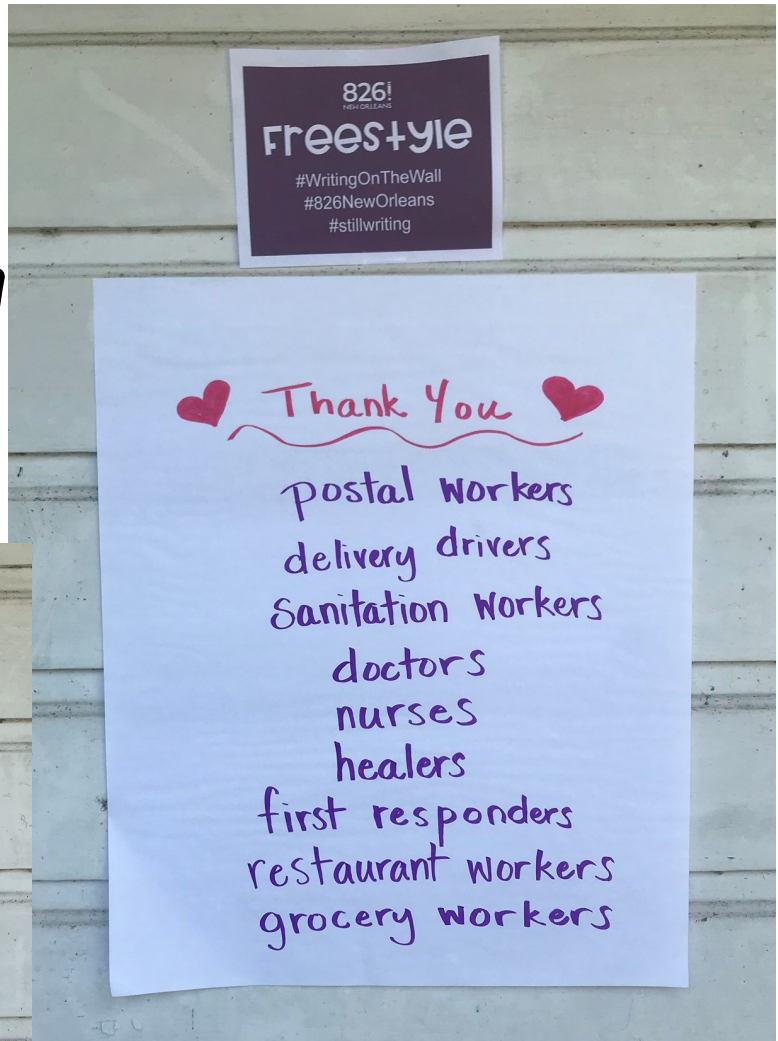 826!
NEW ORLEANS
Freestyle
#WritingOnTheWall
#826NewOrleans
#stillwriting
Thank You
postal workers
delivery drivers
sanitation workers
doctors
nurses
healers
first responders
restaurant workers
grocery workers